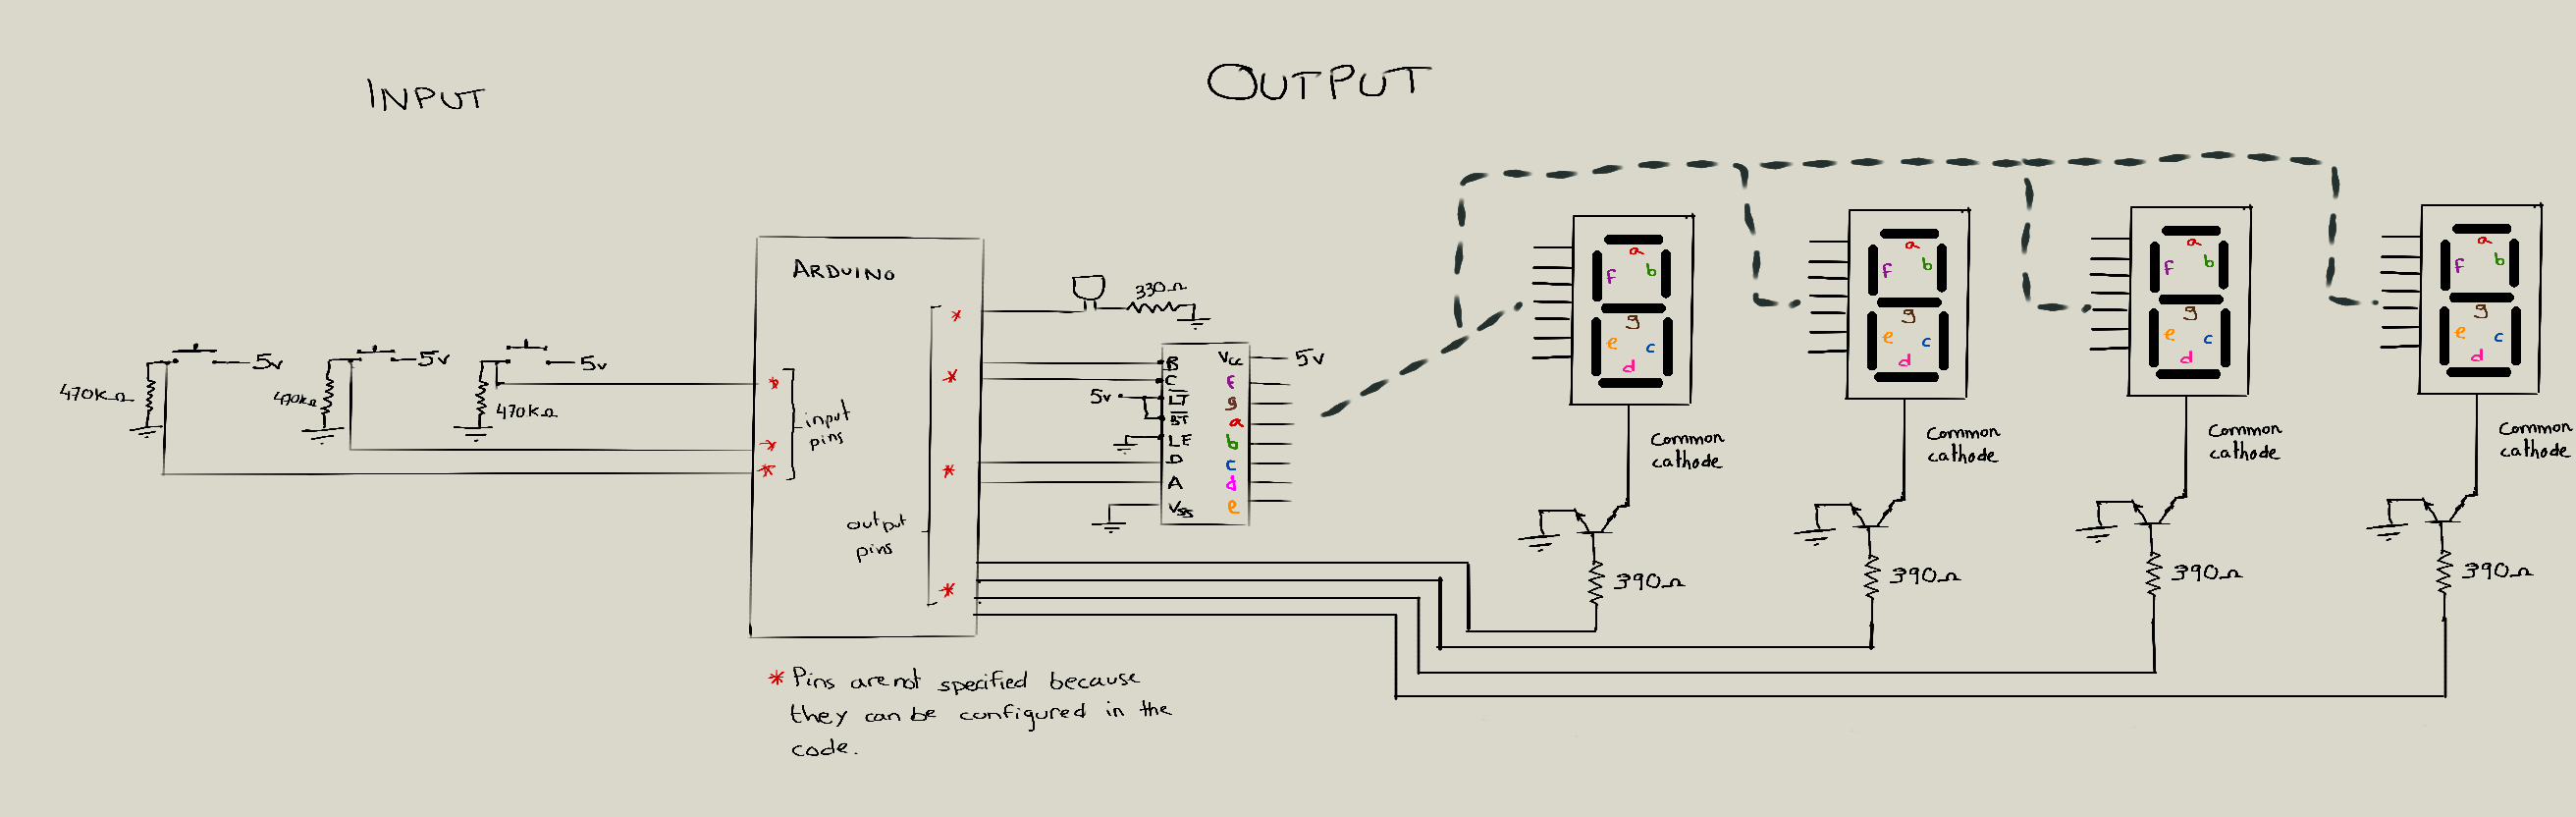 INPUT
OUTPUT
ARDUINO
input
pins
output
pins
470kΩ
5v
470kΩ
5v
470kΩ
5v
330Ω
B
C
5v
LT
BT
LE
D
A
Vss
Vcc
5v
f
g
a
b
c
d
e
a
f
b
g
e
c
d
Common
cathode
390Ω
a
f
b
g
e
c
d
Common
cathode
390Ω
a
f
b
g
e
c
d
Common
cathode
390Ω
a
f
b
g
e
c
d
Common
cathode
390Ω
* Pins are not specified because
they can be configured in the
code.